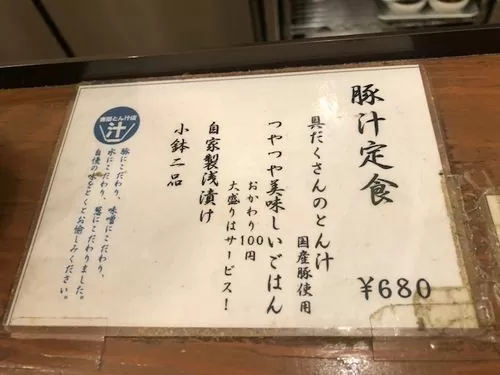 豚汁定食
¥680
具だくさんのとん汁
国産豚使用
つやつや美味しいごはん
おかわり100円
大盛りはサービス!
自家製浅漬け
小鉢二品
汁
豚にこだわり、味噌にこだわり、
水にこだわり、葱にこだわりました。
自慢の味をとくとお愉しみください。